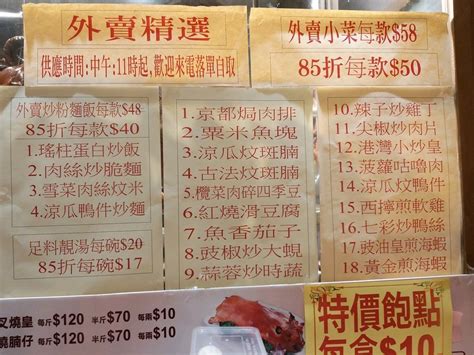 外賣精選
供應時間:中午:11時起,歡迎來電落單自取
外賣小菜每款$58
85折每款$50
外賣炒粉麵飯每款$48
85折每款$40
1.瑤柱蛋白炒飯
2.肉絲炒脆麵
3.雪菜肉絲炆米
4.涼瓜鴨件炒麵
足料靚湯每碗$20
85折每碗$17
1.京都焗肉排
2.粟米魚塊
3.涼瓜炆斑腩
4.古法炆斑腩
5.欖菜肉碎四季豆
6.紅燒滑豆腐
7.魚香茄子
8.豉椒炒大蜆
9.蒜蓉炒時蔬
10.辣子炒雞丁
11.尖椒炒肉片
12.港灣小炒皇
13.菠蘿咕嚕肉
14.涼瓜炆鴨件
15.西檸煎軟雞
16.七彩炒鴨絲
17.豉油皇煎海蝦
18.黃金煎海蝦
叉燒皇 每斤$120 半斤$70 每兩$10
燒腩仔 每斤$120 半斤$70 每兩$10
特價飽點
每盒$10